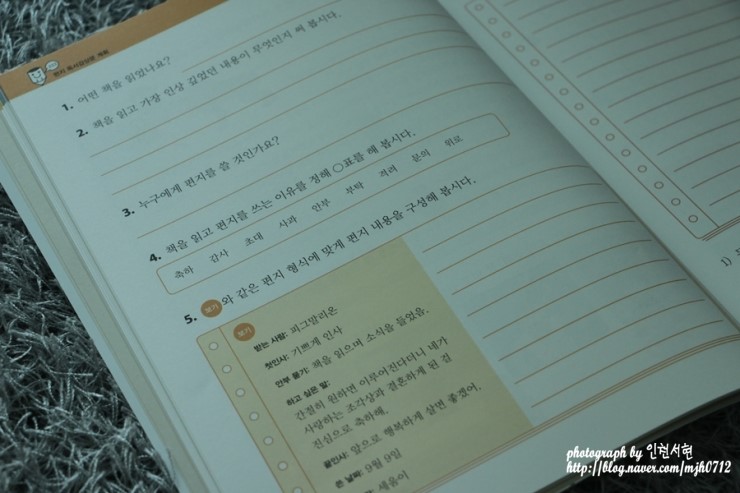 편지 독서감상문 계획
1. 어떤 책을 읽었나요?
2. 책을 읽고 가장 인상 깊었던 내용이 무엇인지 써 봅시다.
3. 누구에게 편지를 쓸 것인가요?
4. 책을 읽고 편지를 쓰는 이유를 정해 ○표를 해 봅시다.
축하 감사 초대 사과 안부 부탁 격려 문의 위로
5. 보기 와 같은 편지 형식에 맞게 편지 내용을 구성해 봅시다.
보기
받는 사람: 피그말리온
첫인사: 기쁘게 인사
안부 묻기: 책을 읽으며 소식을 들었음.
하고 싶은 말:
간절히 원하면 이루어진다더니 네가
사랑하는 조각상과 결혼하게 된 걸
진심으로 축하해.
끝인사: 앞으로 행복하게 살면 좋겠어.
쓴 날짜: 9월 9일
새음이
1)
photograph by 인천서현
http://blog.naver.com/mjh0712